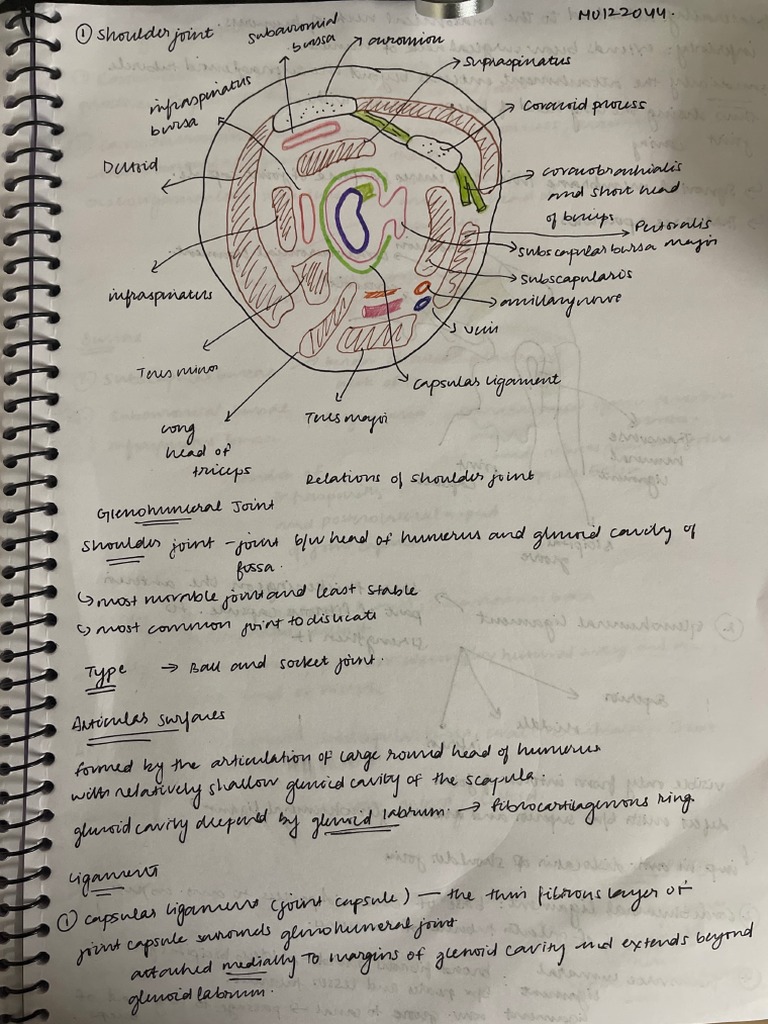 MU122044.
① Shoulder joint
subacromial bursa
acromion
supraspinatus
infraspinatus bursa
coracoid process
Deltoid
coracobrachialis and short head of biceps
Pectoralis major
subscapular bursa
subscapularis
infraspinatus
axillary nerve
vein
Teres minor
capsular ligament
Teres major
long head of triceps
Relations of shoulder joint
Glenohumeral Joint
Shoulder joint - joint b/w head of humerus and glenoid cavity of
fossa.
↳ most movable joint and least stable
↳ most common joint to dislocate
Type → Ball and socket joint.
Articular surfaces
formed by the articulation of large round head of humerus
with relatively shallow glenoid cavity of the scapula.
glenoid cavity deepend by glenoid labrum. → fibrocartilagenous ring.
ligament
① capsular ligament (joint capsule) — the thin fibrous layer of
joint capsule surrounds glenohumeral joint
attached medially to margins of glenoid cavity and extends beyond
glenoid labrum.